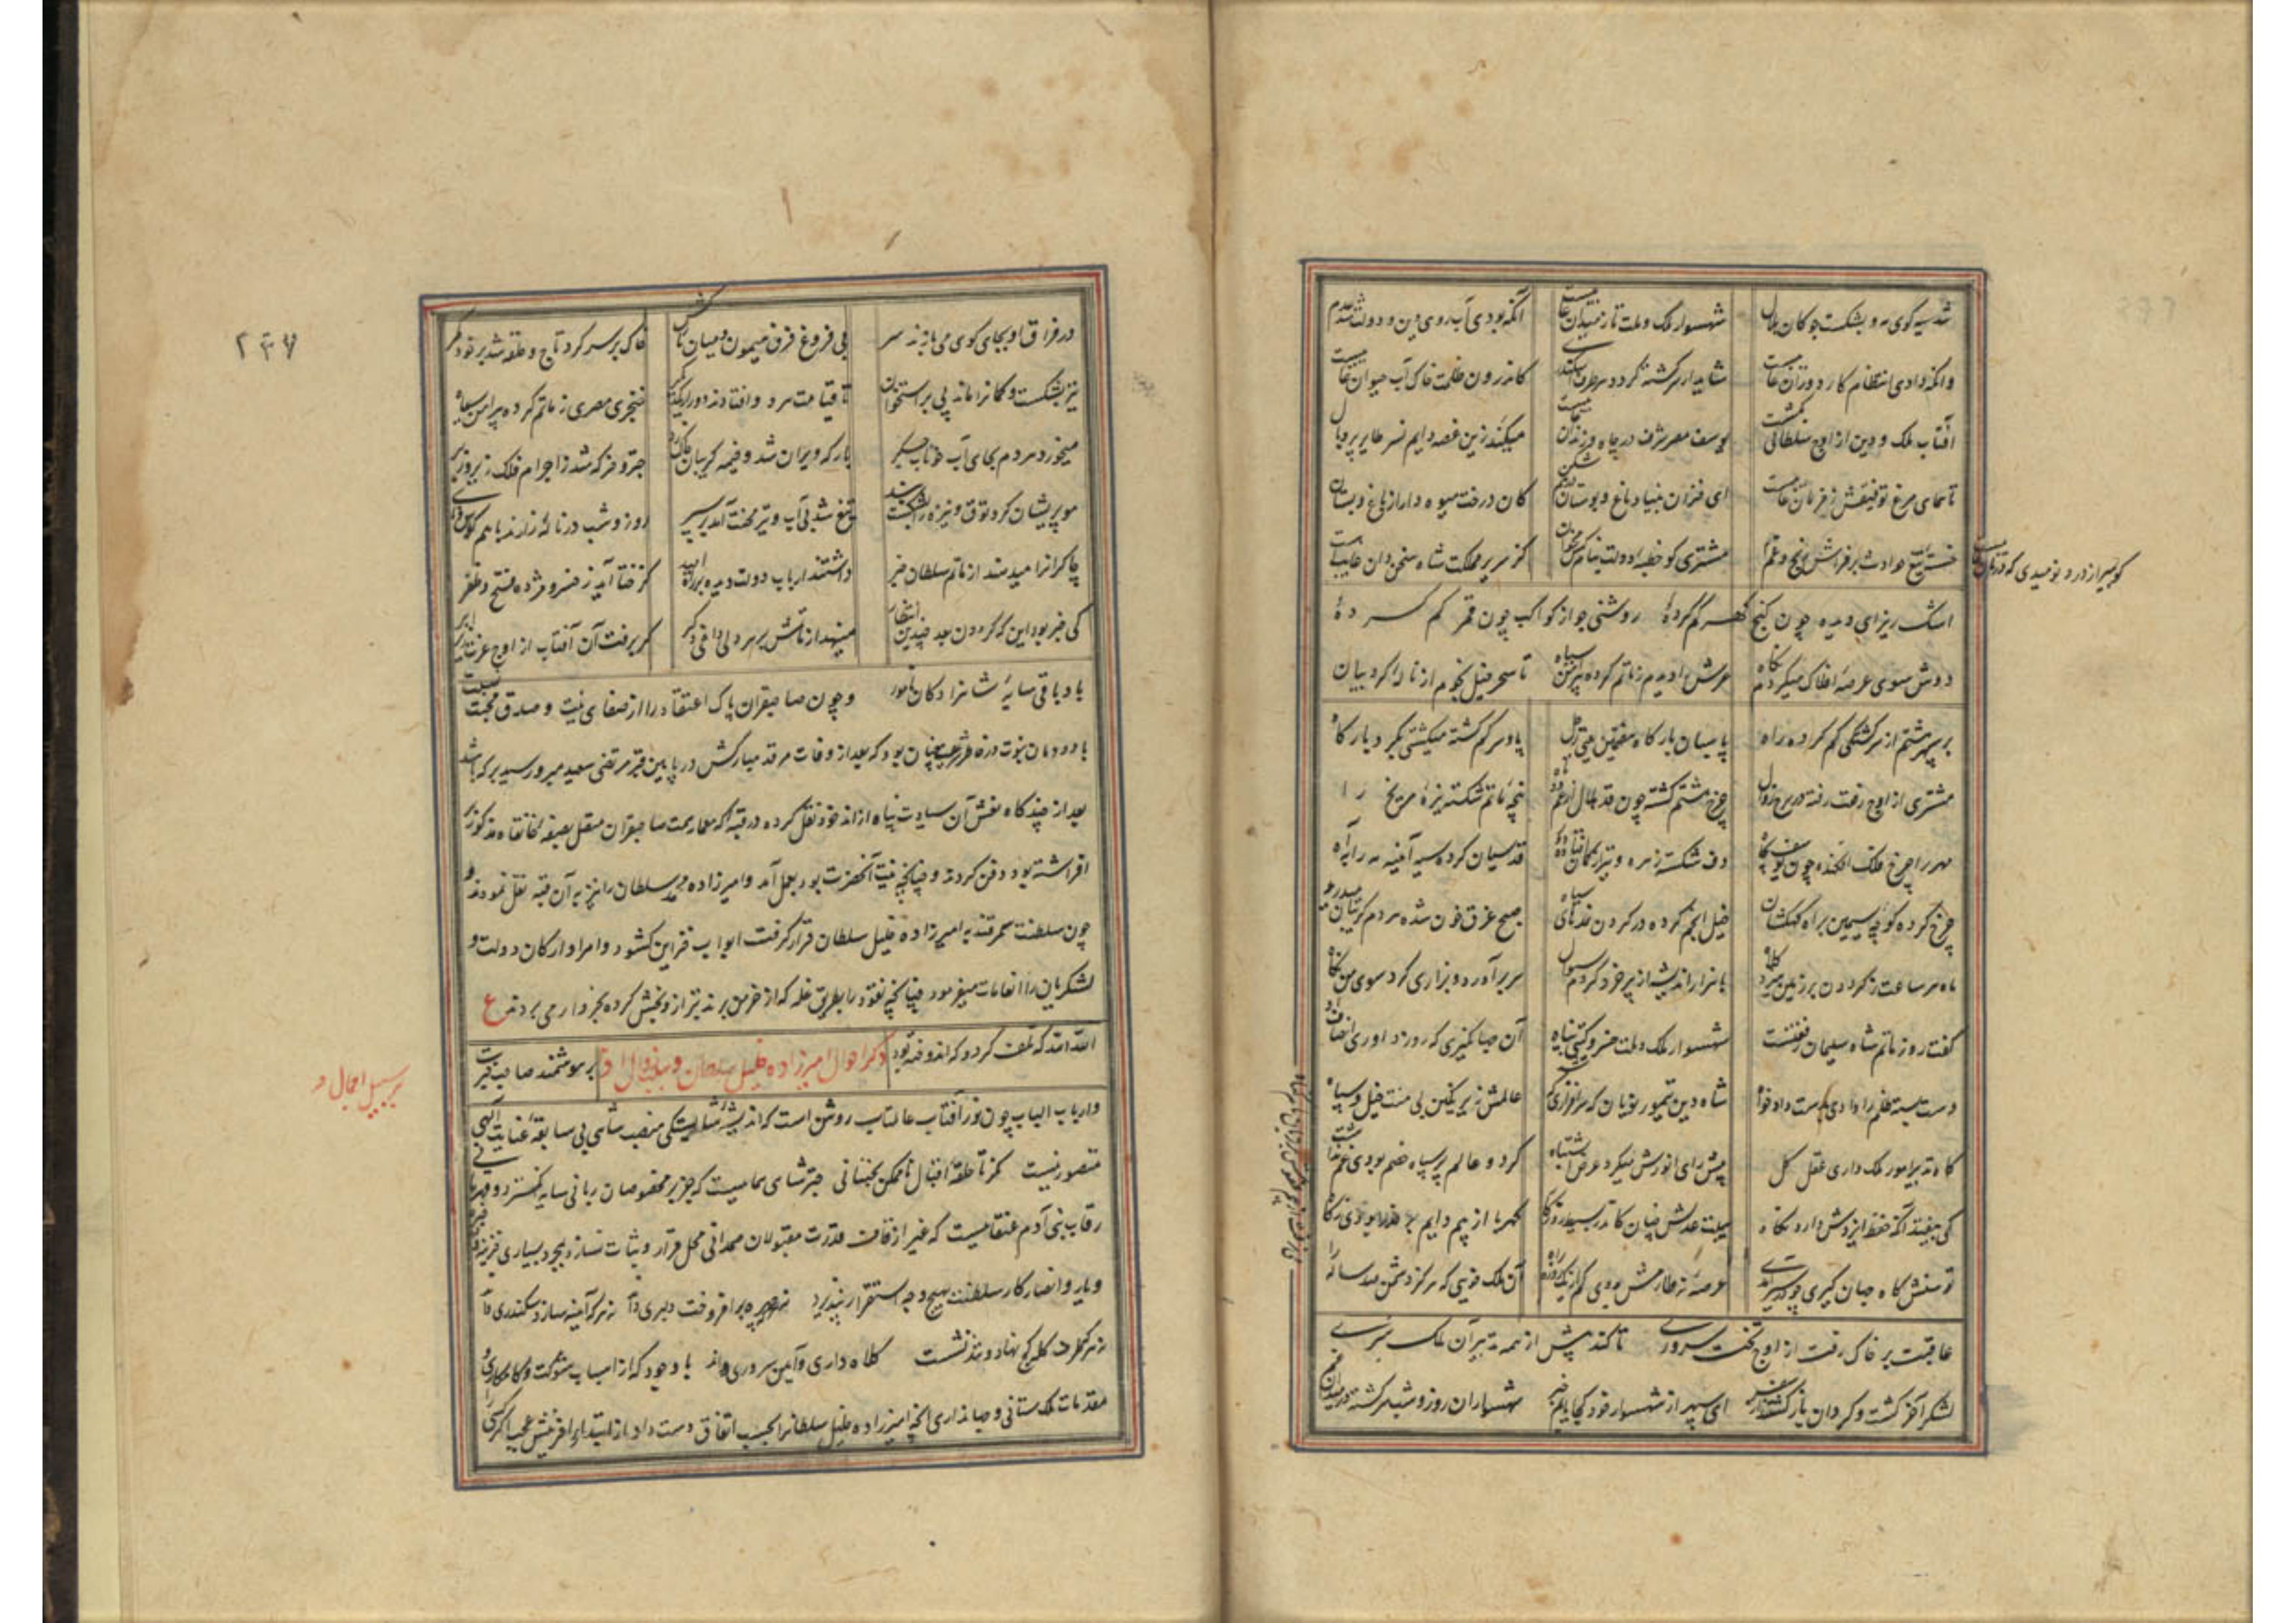 شد سیه کوی مه و بشکست چوکان هلال شهسوار ملک و ملت تا ز میدان غایبست آنکه بودی آب روی دین و دولت شد عدم
وانکه دادی انتظام کار دوران غایبست شاید ار سرکشته کردد هر طرف اسکندری کاندرون ظلمت خاک آب حیوان غایبست
آفتاب ملک و دین از اوج سلطانی کمشت یوسف مصر شرف در چاه و زندان غایبست میکند زین غصه دایم نسر طایر پر و بال
تا همای مرغ توفیقش ز فرمان غایبست ای خزان بنیاد باغ و بوستان درهم شکن کان درخت میوه دار از باغ و بستان غایبست
تیغ حوادث بر فراش رنج و غم مشتری کو خطبهٔ دولت بنام کس مخوان کز سریر مملکت شاه سخن دان غایبست
کو بمیر از درد نومیدی که درمان غایبست
اشک ریز ای دیده چون کنج کهر کم کردهٔ روشنی جو از کواکب چون قمر کم کردهٔ
دوش سوی عرصهٔ افلاک میکردم نکاه عرش را دیدم ز ماتم کرده پیراهن سیاه تا سحر خیل نجوم از ناله کردبیان
بر سپهر هشتم از سرکشتکی کم کرده راه پاسبان بارکاه هفتمین یعنی زحل پا و سر کم کشته میکشتی بکرد بارکاه
مشتری از اوج رفعت رفته در برج زوال چرخ هشتم کشته چون قد هلال از غم دوتاه پنجهٔ ماتم شکسته نیزهٔ مریخ را
مهر را چرخ فلک افکنده چون یوسف بچاه دف شکسته زهره و تیر از کمان افتاده قدسیان کرده سیه آیینهٔ مه را به آه
چرخ کرده کوچه سیمین براه کهکشان خیل انجم کرده در کردن نمدهای سیاه صبح غرق خون شده مردم کریبان میدرد
ماه هر ساعت ز کردون بر زمین میزد کلاه با هزار اندیشه از پیر خرد کردم سوال سر برآورد و بزاری کرد سوی من نکاه
کفت روز ماتم شاه سلیمان رفعتست شهسوار ملک و ملت خسرو کیتی پناه آن جهانکیری که روز داوری انصاف او
دست بسته ظلم را دادی بدست دادخواه شاه دین تیمور کورکان که سرافرازی عالمش زیر نکین بی منت خیل و سپاه
کاه تدبیر امور ملک داری عقل کل پیش رای انورش میکرد عرض اشتباه کرد و عالم پر سپاه خصم بودی غم نداشت
کی بیفتد آنکه حفظ ایزدش دارد نکاه هیبت عدلش چنان کاندر بسیط روزکار کهربا از بیم دایم بر حذر بودی ز کاه
توسنش کاه جهان کیری چو عرصهٔ ز عطارش بودی کم از یک روزه راه آن ملک خویی که هرکز دشمن صد ساله را
عاقبت بر خاک رفت از اوج تخت سروری تا کند پیش از همه تدبیر آن ملک سری
لشکر آخر کشت و کردان باز کشتند از سفر ای سپهر از شهسوار خود کجا یابم خبر شهسواران روز و شب سرکشته در میدان غم
۲۳۷
در فراق او بجای کوی می بازند سر بی فروغ فرق میمون و میان نازکش خاک بر سر کرد تاج و طوق شد بر خود کمر
تیز بشکست و کمانرا ماند پی بر استخوان تا قیامت مرد و افتادند دور از یکدکر خنجری مصری ز ماتم کرده پیراهن سیاه
میخورد مردم بجای آب خوناب جکر بارکه ویران شد و خیمه کریبان چاک زد چتر و خرکه شد ز اجرام فلک زیر و زبر
مو پریشان کرد توق و نیزه را بشکست تیغ شد بی آب و تیر محنت آمد بر سپر روز و شب در ناله زارند با هم کوس و نای
چاکرانرا میدهند از ماتم سلطان خبر داشتند ارباب دولت دیده بر راه امید کز ختا آید ز خسرو مژده فتح و ظفر
کی خبر بود این که کردون بعد چندین انتظار مینهد از ماتمش بر هر دلی داغی دکر کر برفت آن آفتاب از اوج عزت
باد باقی سایهٔ شاهزادکان نامور و چون صاحبقران پاک اعتقاد را از صفای نیت و صدق محبت نسبت
با دودمان نبوت بود که بعد از وفات مرقد مبارکش در پایین قبر مرتضی سعید میر سید برکه باشد
بعد از چند کاه نعش آن سیادت پناه از اندخود نقل کرده در قبه که معمار همت صاحبقران متصل بصفهٔ خانقاه مذکور
افراشته بود دفن کردند و چنانچه نیت آنحضرت بود بعمل آمد و امیرزاده محمد سلطان را نیز به آن قبه نقل نمودند و
چون سلطنت سمرقند بر امیرزاده خلیل سلطان قرار کرفت ابواب خزاین کشود و امرا و ارکان دولت و
لشکریان را انعامات میفرمود چنانچه نقود را بطریق غله که از خرمن برند بترازو بخش کرده بخروار می بردند ع
الله الله که تلف کرد و که اندوخته بود ذکر احوال امیرزاده خلیل سلطان و مبادی زوال او بر هوشمند صاحب خبرت
بر سبیل اجمال
و ارباب الباب چون نور آفتاب عالمتاب روشن است که اندیشه شایستکی منصب شاهی بی سابقهٔ عنایت الهی
متصور نیست کز تا حلقهٔ اقبال ناممکن نجنبانی چتر شاهی هماییست که جز بر مخصوصان ربانی سایه نکسترد و
رقاب بنی آدم عنقاییست که غیر از قاف قدرت مقبولان صمدانی محل قرار و ثبات نسازد بمجرد بسیاری خزینه
و یار و انصار کار سلطنت بهیچ وجه استقرار نپذیرد نه هر که چهره برافروخت دلبری داند نه هر که آینه سازد سکندری داند
نه هر که طرف کله کج نهاد و تند نشست کلاه داری و آیین سروری داند با وجود که از اسباب شوکت و کامکاری و
مقدمات ملک ستانی و جهانداری آنچه امیرزاده خلیل سلطانرا بحسب اتفاق دست داد از ابتداء آفرینش عجب اکر کسی را